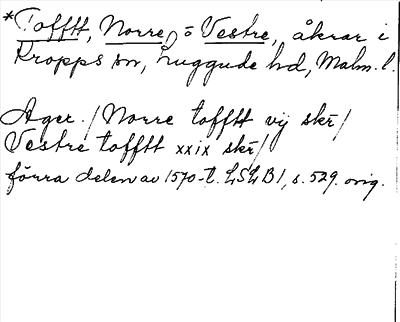 *Tofftt, Norre o Vestre, åkrar i
Kropps sn, Luggude hd, Malm. l.
Ager. / Norre tofftt vij skr̄ /
Vestre tofftt xxix skr̄ /
förra delen av 1570-t. LSLB1, s. 529. orig.